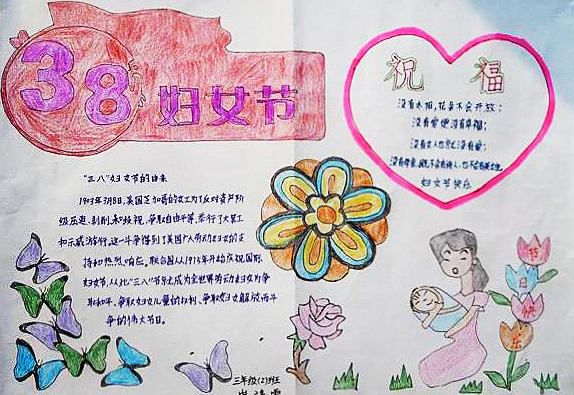 38 妇女节
祝福
没有太阳,花朵不会开放;
没有爱便没有幸福;
没有女人也就没有爱;
没有母亲,既不会有诗人,也不会有英雄。
妇女节快乐
"三八"妇女节的由来
1909年3月8日,美国芝加哥的女工为了反对资产阶
级压迫、剥削、和歧视,争取自由平等,举行了大罢工
和示威游行。这一斗争得到了美国广大劳动妇女的支
持和热烈响应。联合国从1975年开始庆祝国际
妇女节,从此"三八"节就成为全世界劳动妇女为争
取和平、争取妇女儿童的权利、争取妇女解放而斗
争的伟大节日。
节日快乐
三年级(2)班